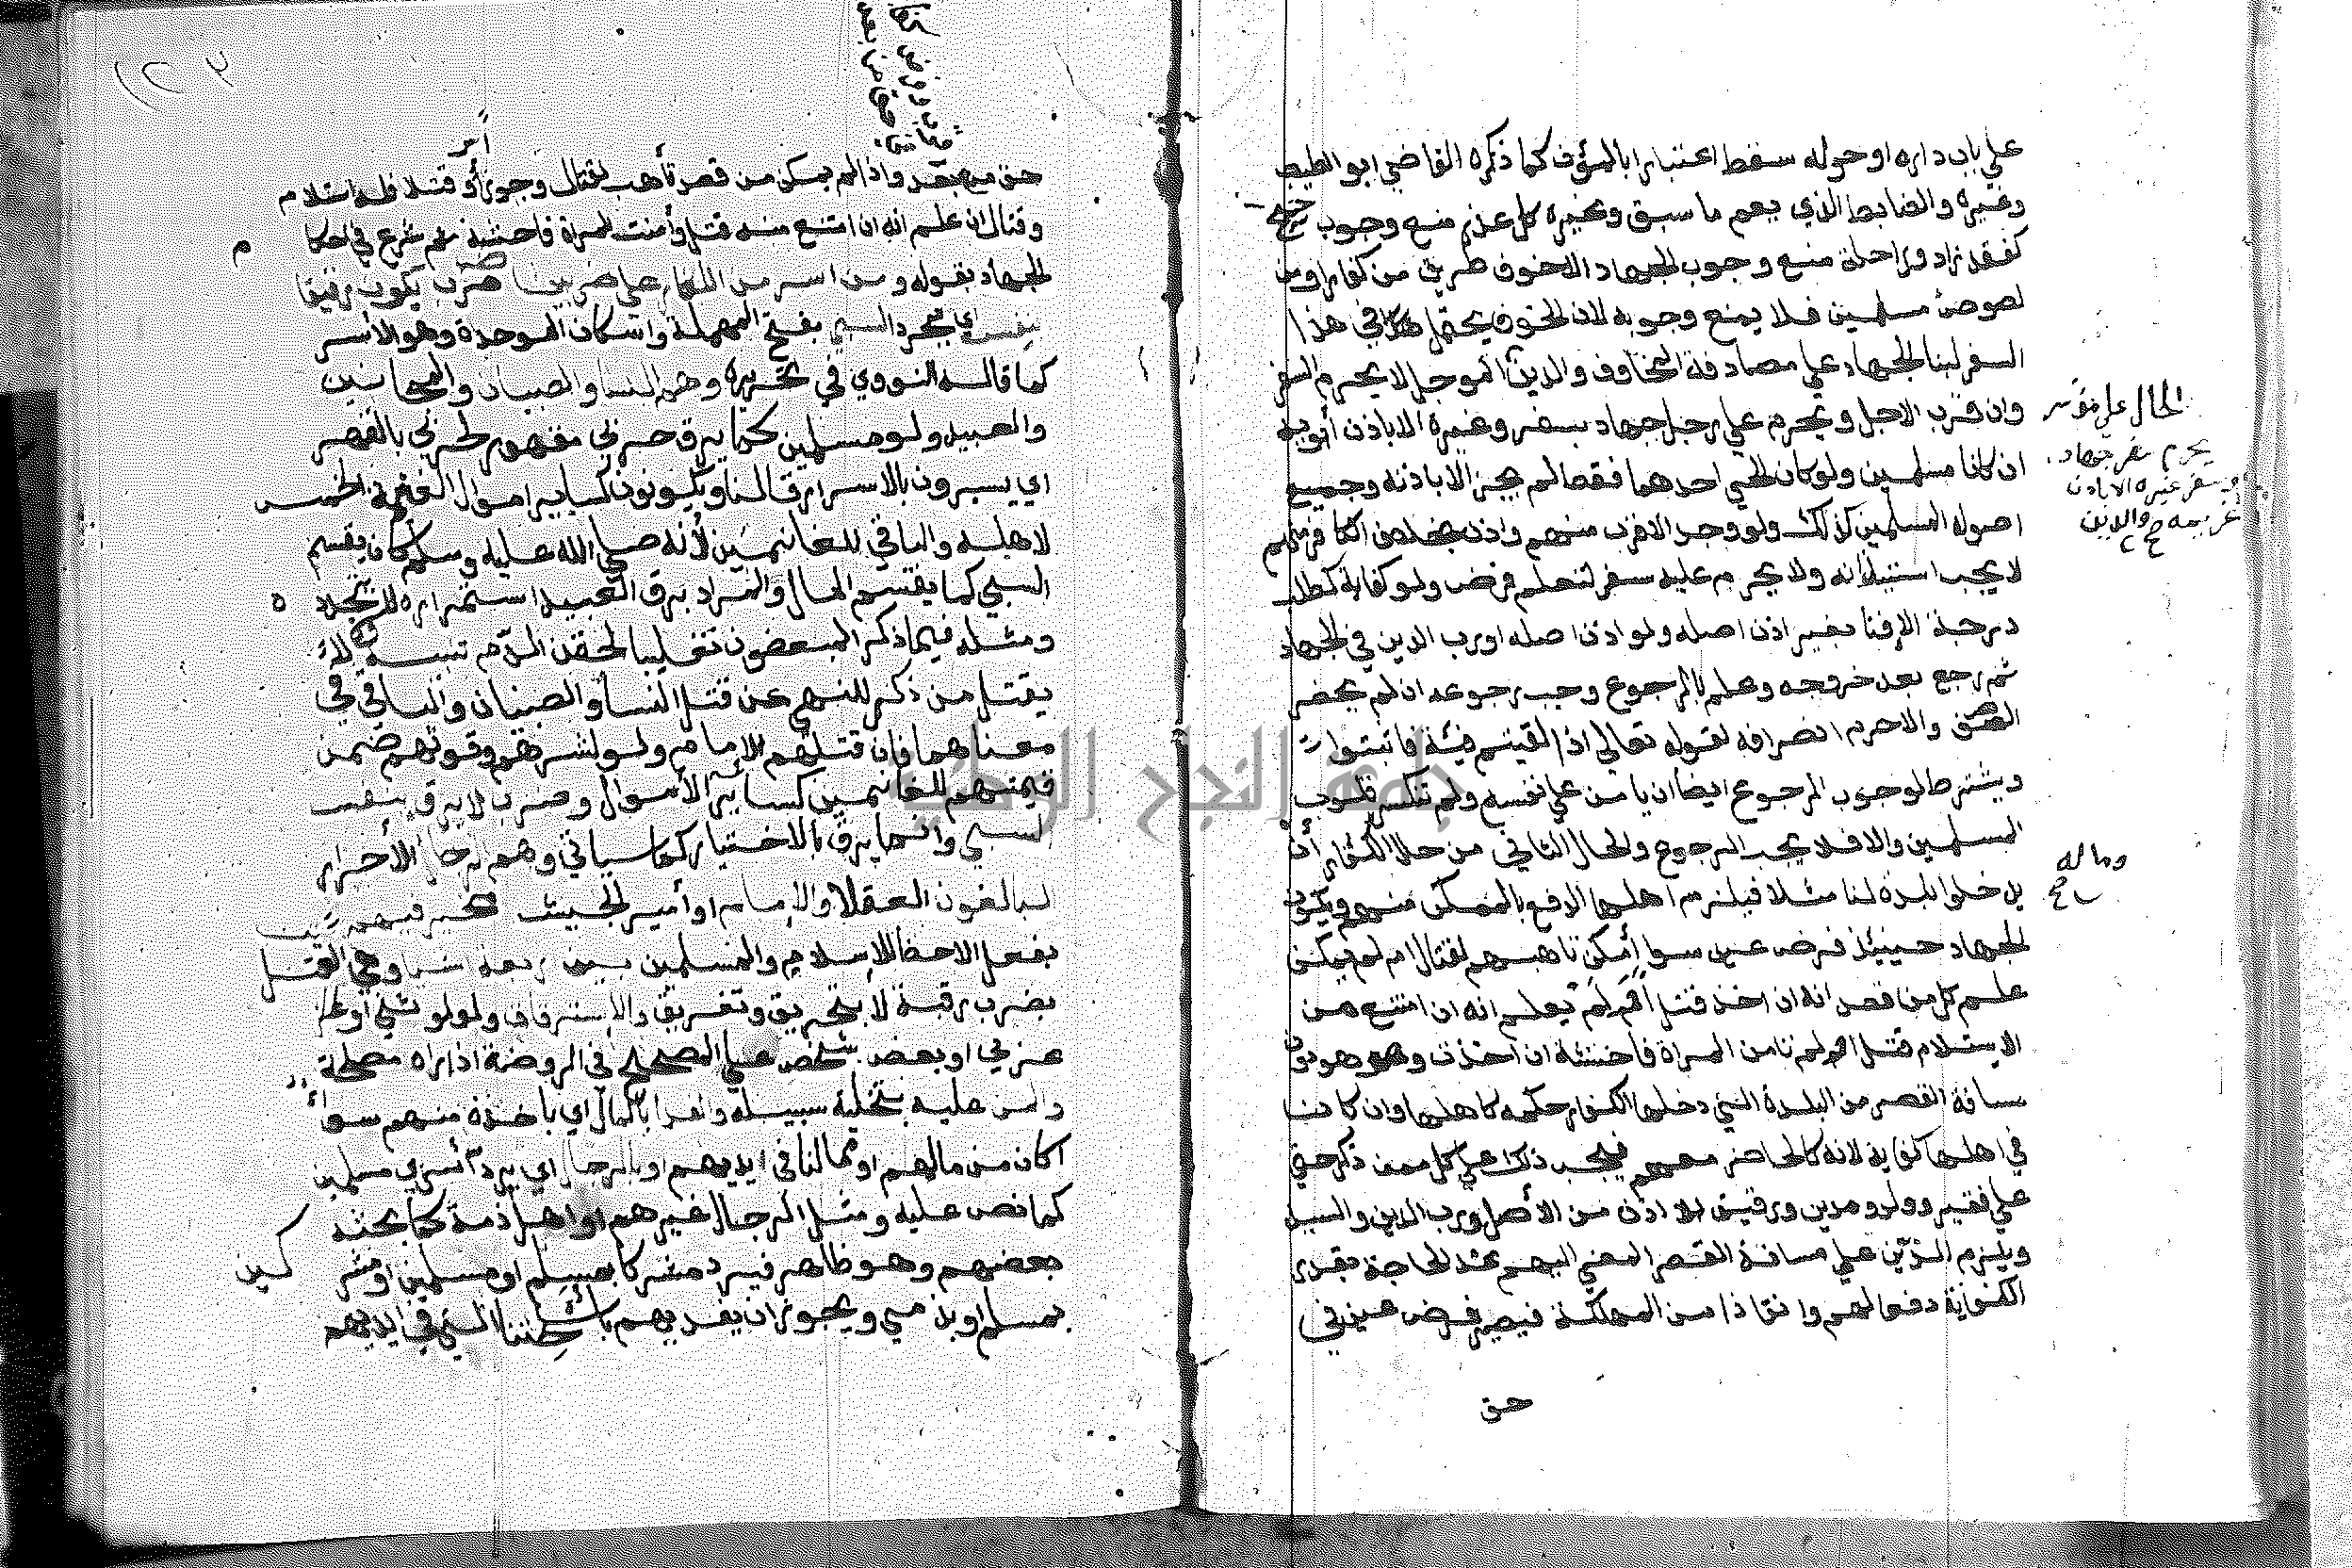 على باب داره او حوله سقط اعتبارا بالمؤن كما ذكره القاضي ابو الطيب
وغيره والضابط الذي يعم ما سبق وغيره كل عذر منع وجوب حج
كفقد زاد وراحلة منع وجوب الجهاد الا خوف طريق من كفار او من
لصوص مسلمين فلا يمنع وجوبه لان الخوف يحتمل في هذا
السفر لبنا الجهاد على مصادفة المخاوف والدين المؤجل لا يحرم السفر
وان قرب الاجل ويحرم على رجل جهاد بسفر وغيره الا باذن ابويه
ان كانا مسلمين ولو كان الحي احدهما فقط لم يجز الا باذنه وجميع
اصوله المسلمين كذلك ولو وجد الاقرب منهم واذن بخلاف الكافر منهم
لا يجب استئذانه ولا يحرم عليه سفر لتعلم فرض ولو كفاية كطلب
درجة الإفتا بغير اذن اصله ولو اذن اصله او رب الدين في الجهاد
ثم رجع بعد خروجه وعلم بالرجوع وجب رجوعه ان لم يحضر
الصف والا حرم انصرافه لقوله تعالى اذا لقيتم فئة فاثبتوا
ويشترط لوجوب الرجوع ايضا ان يامن على نفسه ولم تنكسر قلوب
المسلمين والا فلا يجب الرجوع والحال الثاني من حال الكفار أن
يدخلوا بلدة لنا مثلا فيلزم اهلها الدفع بالممكن منهم ويكون
الجهاد حينئذ فرض عين سوا أمكن تاهبهم لقتال ام لم يمكن
علم كل من قصد انه ان اخذ قتل ام لم يعلم انه ان امتنع من
الاستسلام قتل ام لم تامن المراة فاحشة ان اخذت ومن هو دون
مسافة القصر من البلدة التي دخلها الكفار حكمه كاهلها وان كان
في اهلها كفاية لانه كالحاضر معهم فيجب ذلك على كل ممن ذكر حتى
على فقير وولد ومدين ورقيق بلا اذن من الأصل ورب الدين والسيد
ويلزم الذين على مسافة القصر المضي اليهم عند الحاجة بقدر
الكفاية دفعا لهم وانقاذا من الهلكة فيصير فرض عين في
حق
الحال على مؤسر
يحرم سفر جهاد
وسفر غيره الا باذن
غريمه والدين
وماله
حق من بعد واذا لم يمكن من قصد تأهب لقتال وجوز أسر أو قتلا فله استسلام
وقتال ان علم انه ان امتنع منه قتل وأمنت المراة فاحشة ثم شرع في احكام
الجهاد بقوله ومن اسر من الكفار على ضربين ضرب يكون رقيقا
بنفس اي بمجرد السبي بفتح المهملة واسكان الموحدة وهو الأسر
كما قاله النووي في تحريره وهم النسا والصبيان والمجانين
والعبيد ولو مسلمين كما يرق حربي مقهور لحربي بالقهر
اي يسيرون بالاسر ارقا لنا ويكونون كساير اموال الغنيمة الخمس
لاهله والباقي للغانمين لأنه صلى الله عليه وسلم كان يقسم
السبي كما يقسم المال والمراد برق العبيد استمراره لا تجدده
ومثلهم فيما ذكر المبعضون تغليبا لحقن الدم تنبيه لا
يقتل من ذكر للنهي عن قتل النسا والصبيان والباقي في
معناهما فان قتلهم الامام ولو لشرهم وقوتهم ضمن
قيمتهم للغانمين كساير الأموال وضرب لا يرق بنفس
السبي وانما يرق بالاختيار كما سياتي وهم الرجال الأحرار
البالغون العقلا والإمام او أمير الجيش مخير فيهم
بفعل الاحظ للإسلام والمسلمين بين اربعة اشيا وهي القتل
بضرب رقبة لا بتحريق وتغريق والإسترقاق ولو لوثني او
عربي او بعض شخص على المصحح في الروضة اذا راه مصلحة
والمن عليه بتخلية سبيله والفدا بالمال اي باخذه منهم سواء
اكان من مالهم او مالنا في ايديهم او بالرجال اي برد أسرى مسلمين
كما نص عليه ومثل الرجال غيرهم او اهل ذمة كما بحثه
بعضهم وهو ظاهر فيرد مشركا بمسلم او مسلمين او مشر
كين
بمسلم او بذمي ويجوز ان يفديهم باسلحتنا التي في ايديهم
جامعة النجاح الوطنية